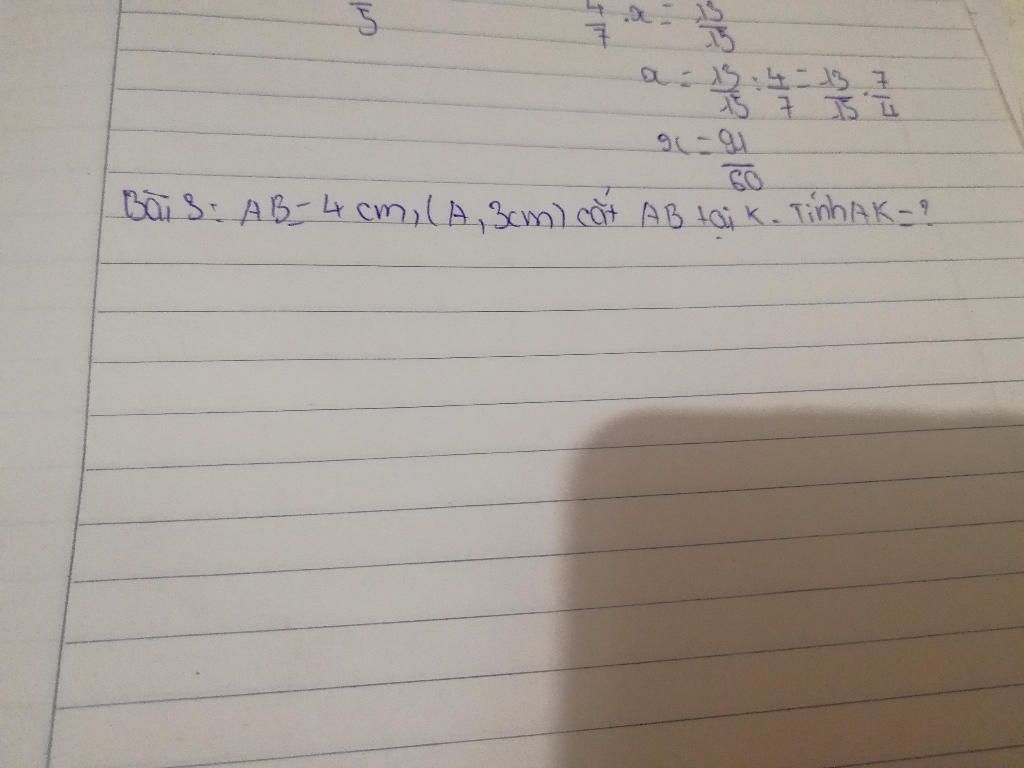 5
4/7 . x = 13/15
x = 13/15 : 4/7 = 13/15 . 7/4
x = 91/60
Bài 3: AB = 4 cm, (A, 3cm) cắt AB tại K. Tính AK = ?